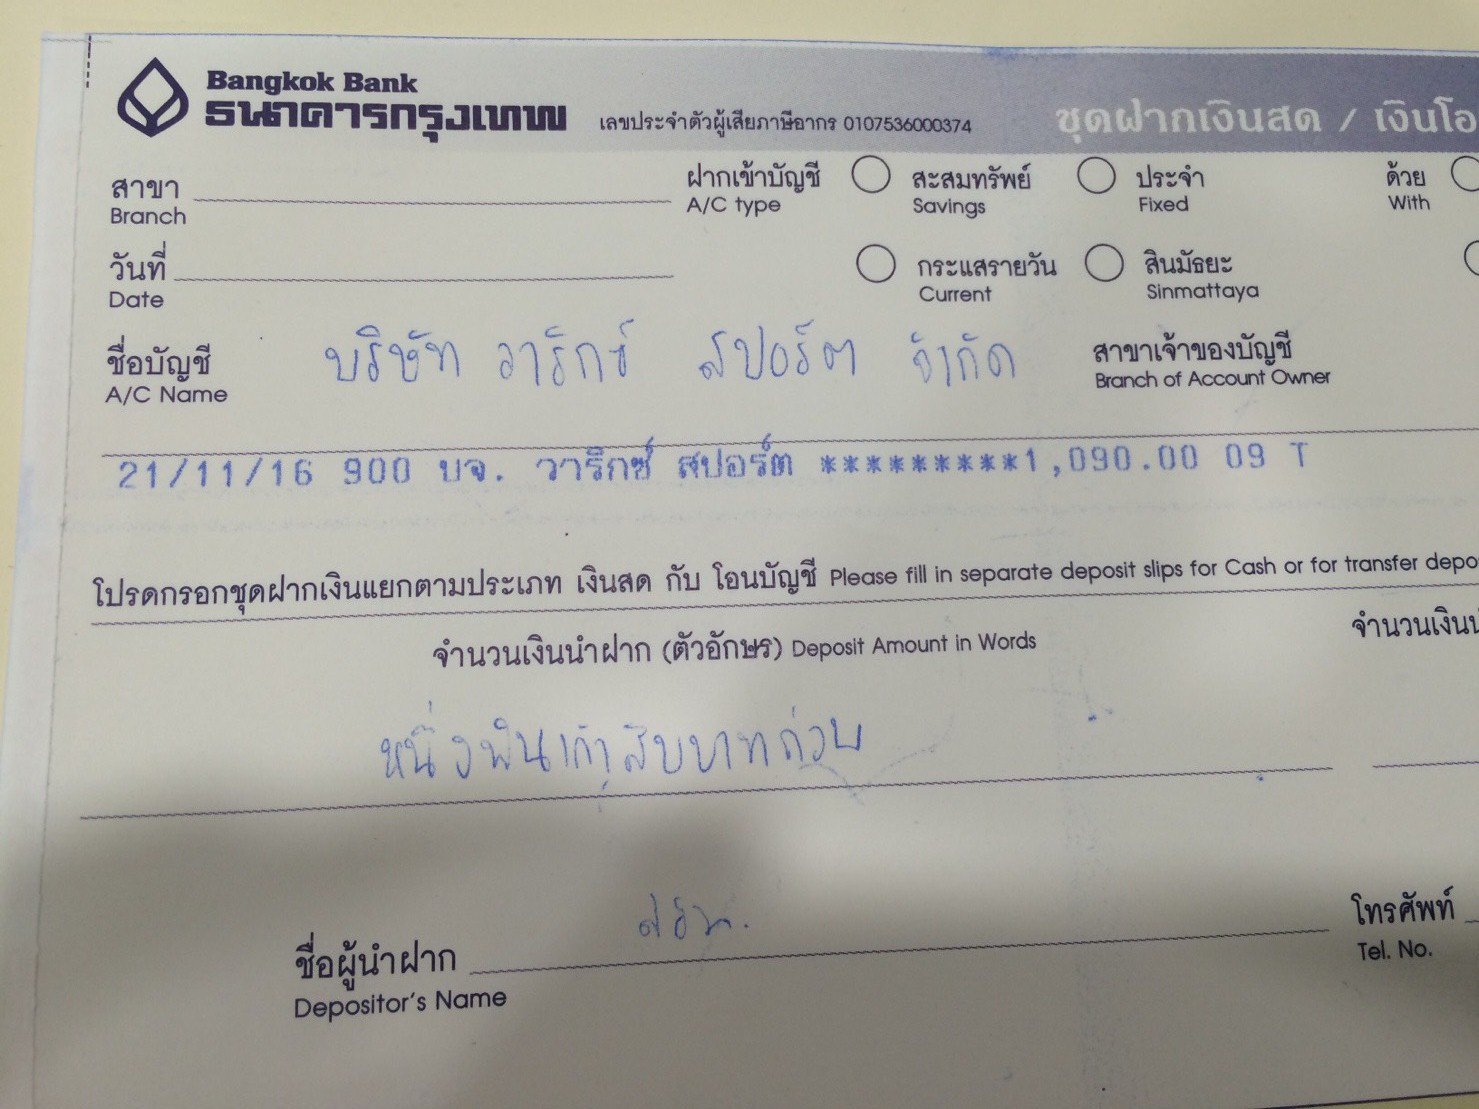 Bangkok Bank
ธนาคารกรุงเทพ เลขประจำตัวผู้เสียภาษีอากร 0107536000374 ชุดฝากเงินสด / เงินโอ
สาขา ฝากเข้าบัญชี สะสมทรัพย์ ประจำ ด้วย
Branch A/C type Savings Fixed With
วันที่ กระแสรายวัน สินมัธยะ
Date Current Sinmattaya
ชื่อบัญชี บริษัท วาริกซ์ สปอร์ต จำกัด สาขาเจ้าของบัญชี
A/C Name Branch of Account Owner
21/11/16 900 บจ. วาริกซ์ สปอร์ต *********1,090.00 09 T
โปรดกรอกชุดฝากเงินแยกตามประเภท เงินสด กับ โอนบัญชี Please fill in separate deposit slips for Cash or for transfer depo
จำนวนเงินนำฝาก (ตัวอักษร) Deposit Amount in Words จำนวนเงินน
หนึ่งพันเก้าสิบบาทถ้วน
ชื่อผู้นำฝาก โทรศัพท์
Depositor's Name Tel. No.